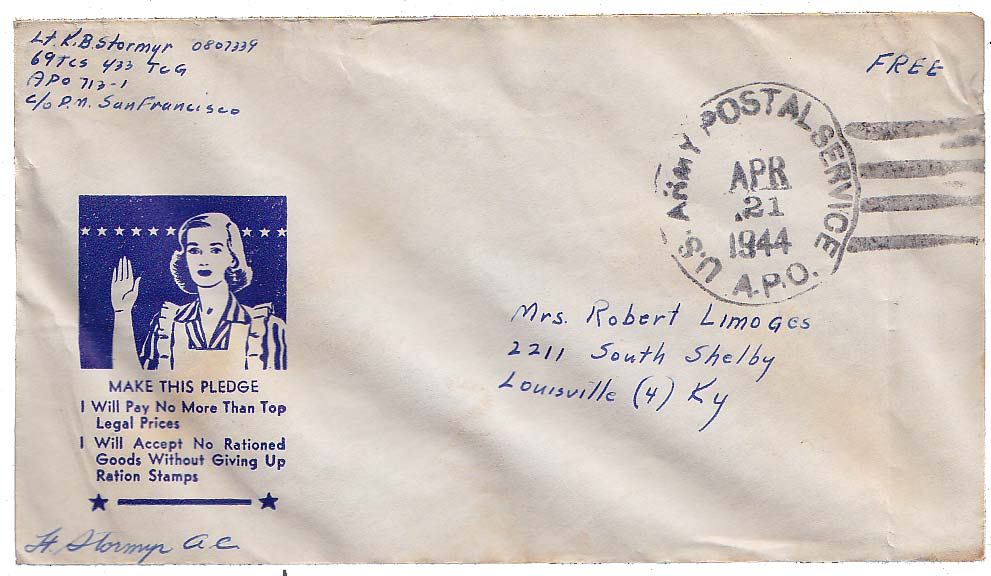 Lt. K.B. Stormyr 0807339
69 TCS 433 TCG
APO 713-1
c/o P.M. San Francisco
FREE
U.S. ARMY POSTAL SERVICE
APR
21
1944
A.P.O.
Mrs. Robert Limoges
2211 South Shelby
Louisville (4) Ky
MAKE THIS PLEDGE
I Will Pay No More Than Top
Legal Prices
I Will Accept No Rationed
Goods Without Giving Up
Ration Stamps
Lt. Stormyr A.C.